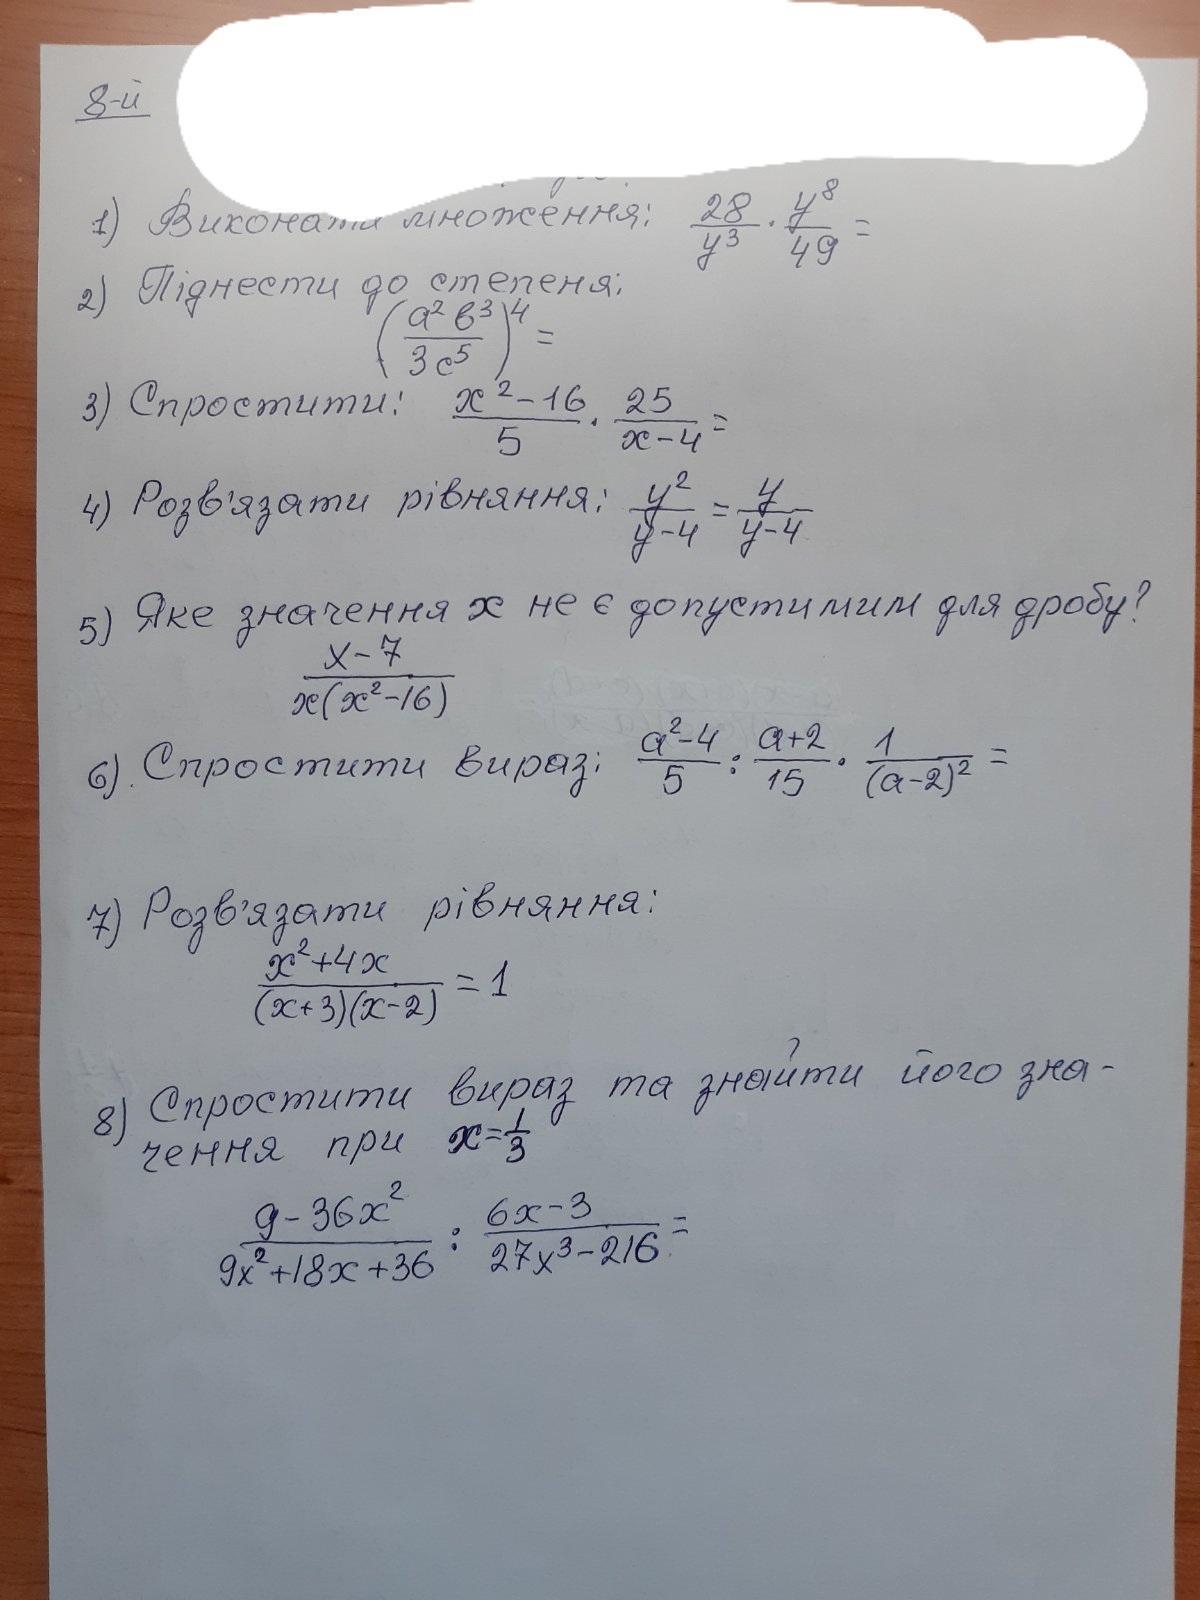 8-й
1) Виконати множення: 28/y³ · y⁸/49 =
2) Піднести до степеня:
(a² b³ / 3c⁵)⁴ =
3) Спростити: (x² - 16)/5 · 25/(x - 4) =
4) Розв'язати рівняння: y²/(y - 4) = y/(y - 4)
5) Яке значення x не є допустимим для дробу?
(x - 7)/(x(x² - 16))
6) Спростити вираз: (a² - 4)/5 : (a + 2)/15 · 1/(a - 2)² =
7) Розв'язати рівняння:
(x² + 4x)/((x + 3)(x - 2)) = 1
8) Спростити вираз та знайти його зна-
чення при x = 1/3
(9 - 36x²)/(9x² + 18x + 36) : (6x - 3)/(27x³ - 216) =